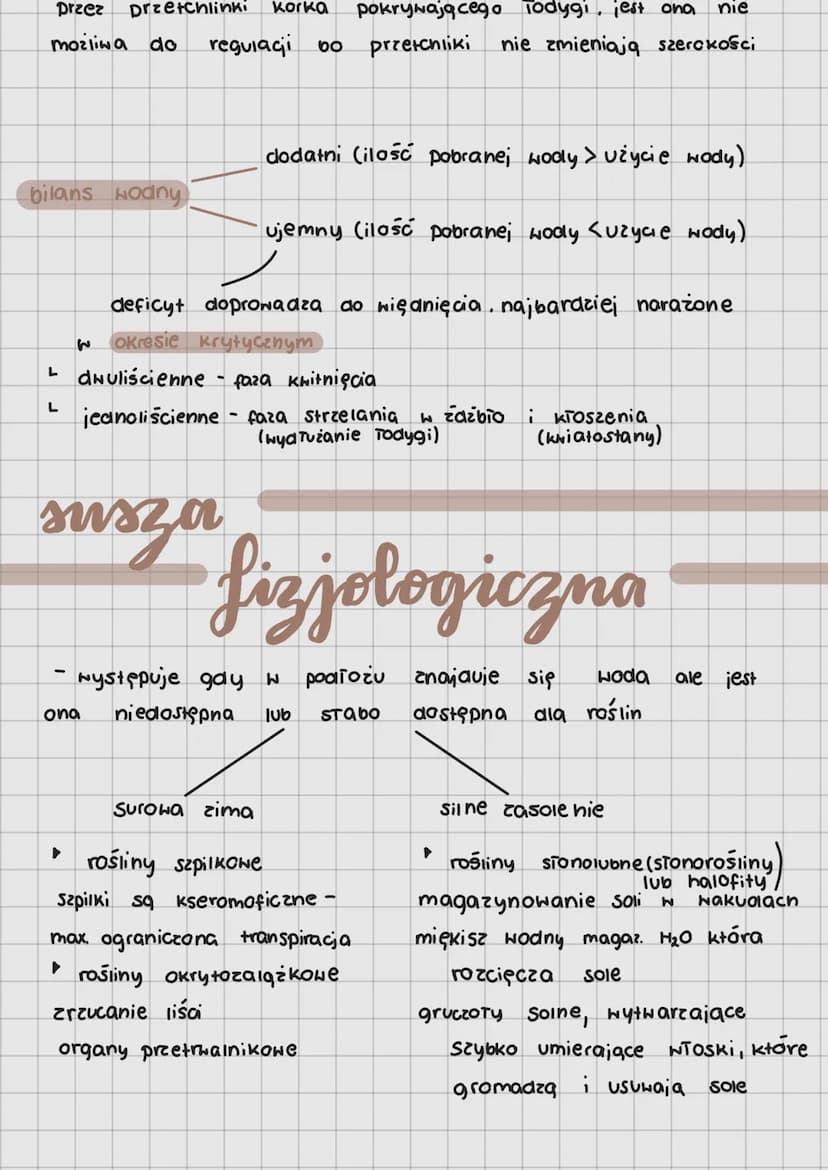 przez przetchlinki korka pokrywającego łodygi. jest ona nie
możliwa do regulacji bo przetchliki nie zmieniają szerokości
dodatni (ilość pobranej wody > użycie wody)
bilans wodny
ujemny (ilość pobranej wody < użycie wody)
deficyt doprowadza do więdnięcia. najbardziej narażone
w okresie krytycznym
└ dwuliścienne - faza kwitnięcia
└ jednoliścienne - faza strzelania w źdźbło i kłoszenia
(wydłużanie łodygi) (kwiatostany)
susza
fizjologiczna
- występuje gdy w podłożu znajduje się woda ale jest
ona niedostępna lub słabo dostępna dla roślin
surowa zima
silne zasolenie
▸ rośliny szpilkowe
szpilki są kseromoficzne -
max. ograniczona transpiracja
▸ rośliny okrytozalążkowe
zrzucanie liści
organy przetrwalnikowe
▸ rośliny słonolubne (słonorośliny
lub halofity)
magazynowanie soli w wakuolach
miękisz wodny magaz. H₂O która
rozcięcza sole
gruczoły solne, wytwarzające
szybko umierające włoski, które
gromadzą i usuwają sole